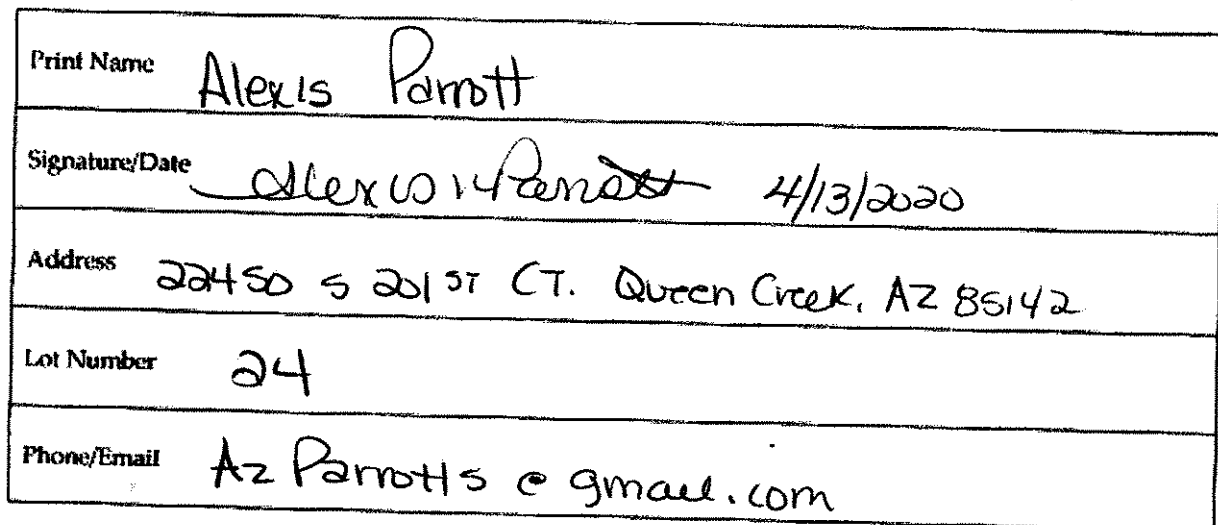 Print Name Alexis Parrott
Signature/Date Alexis Parrott 4/13/2020
Address 22450 S 201ST CT. Queen Creek, AZ 85142
Lot Number 24
Phone/Email AzParrotts@gmail.com